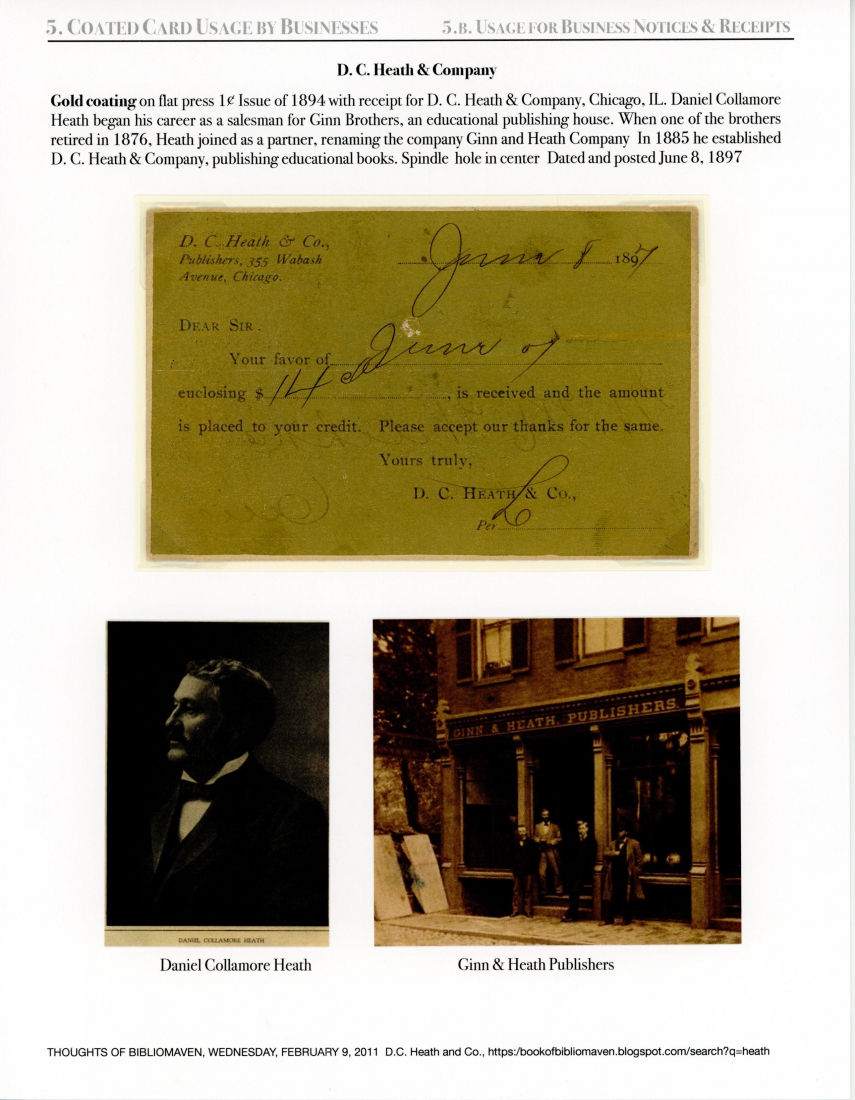 5. COATED CARD USAGE BY BUSINESSES 5.B. USAGE FOR BUSINESS NOTICES & RECEIPTS
D. C. Heath & Company
Gold coating on flat press 1¢ Issue of 1894 with receipt for D. C. Heath & Company, Chicago, IL. Daniel Collamore
Heath began his career as a salesman for Ginn Brothers, an educational publishing house. When one of the brothers
retired in 1876, Heath joined as a partner, renaming the company Ginn and Heath Company In 1885 he established
D. C. Heath & Company, publishing educational books. Spindle hole in center Dated and posted June 8, 1897
D. C. Heath & Co.,
Publishers, 355 Wabash
Avenue, Chicago.
June 8 1897
DEAR SIR.
Your favor of June 07
enclosing $ 14, is received and the amount
is placed to your credit. Please accept our thanks for the same.
Yours truly,
D. C. HEATH & CO.,
Per L
GINN & HEATH, PUBLISHERS.
DANIEL COLLAMORE HEATH
Daniel Collamore Heath Ginn & Heath Publishers
THOUGHTS OF BIBLIOMAVEN, WEDNESDAY, FEBRUARY 9, 2011 D.C. Heath and Co., https:/bookofbibliomaven.blogspot.com/search?q=heath